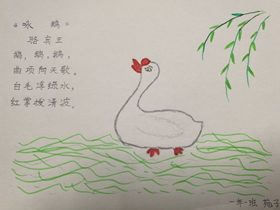 《咏 鹅》
骆宾王
鹅,鹅,鹅,
曲项向天歌。
白毛浮绿水,
红掌拨清波。
一年一班